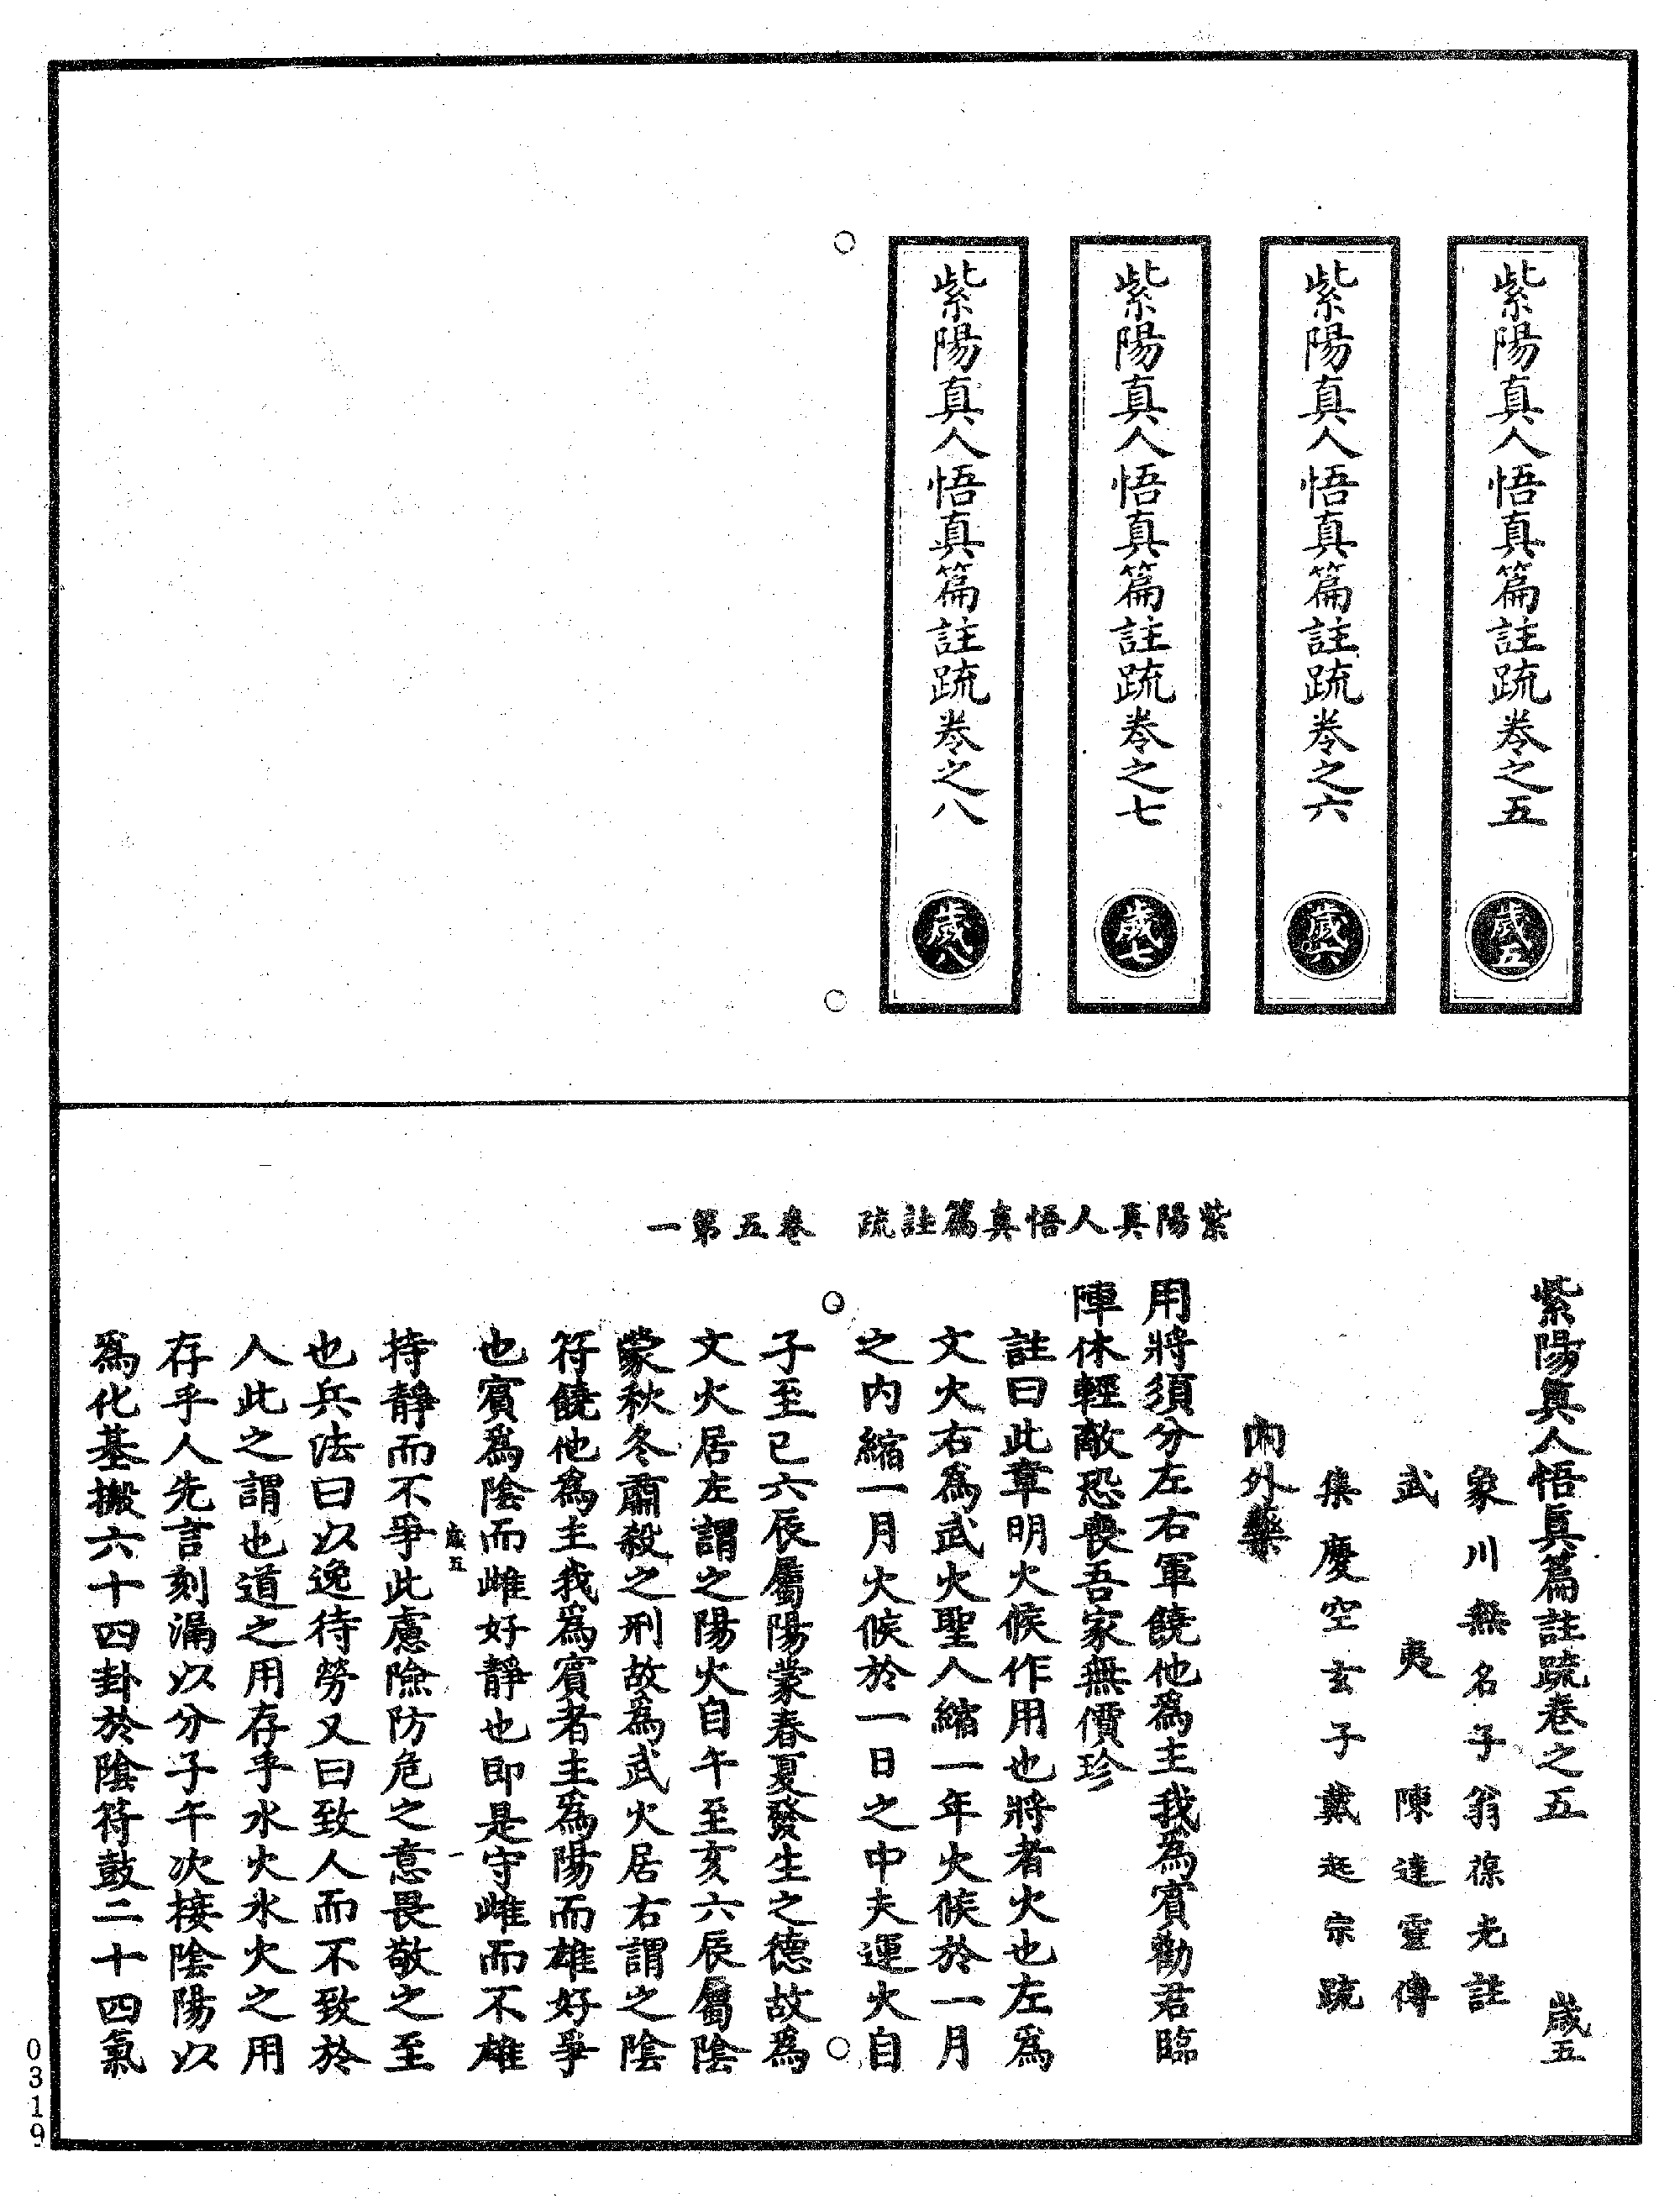 紫陽真人悟真篇註疏卷之五 歲五
紫陽真人悟真篇註疏卷之六 歲六
紫陽真人悟真篇註疏卷之七 歲七
紫陽真人悟真篇註疏卷之八 歲八
紫陽真人悟真篇註疏 卷五第一
紫陽真人悟真篇註疏卷之五 歲五
象川無名子翁葆光註
武夷陳達靈傳
集慶空玄子戴起宗疏
內外藥
用將須分左右軍饒他為主我為賓勸君臨
陣休輕敵恐喪吾家無價珍
註曰此章明火候作用也將者火也左為
文火右為武火聖人縮一年火候於一月
之內縮一月火候於一日之中夫運火自
子至巳六辰屬陽蒙春夏發生之德故為
文火居左謂之陽火自午至亥六辰屬陰
蒙秋冬肅殺之刑故為武火居右謂之陰
符饒他為主我為賓者主為陽而雄好爭
也賓為陰而雌好靜也即是守雌而不雄
歲五 一
持靜而不爭此慮險防危之意畏敬之至
也兵法曰以逸待勞又曰致人而不致於
人此之謂也道之用存乎水火水火之用
存乎人先言刻漏以分子午次接陰陽以
為化基搬六十四卦於陰符鼓二十四氣
0319